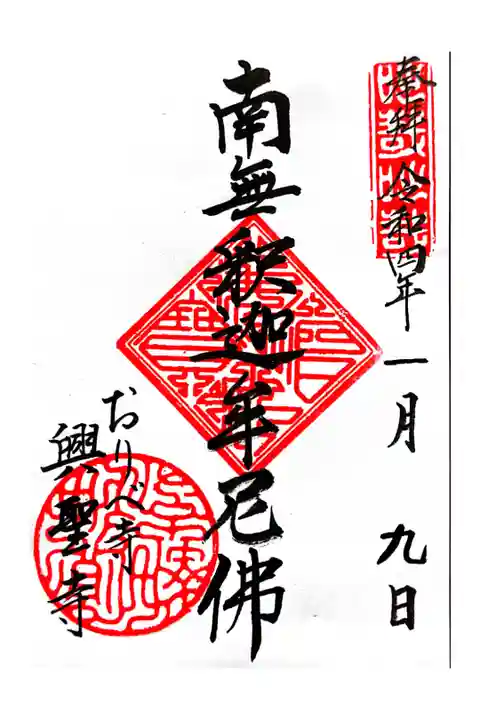 奉拝 令和四年 一月 九日
南無釈迦牟尼佛
おりべ寺
興聖寺